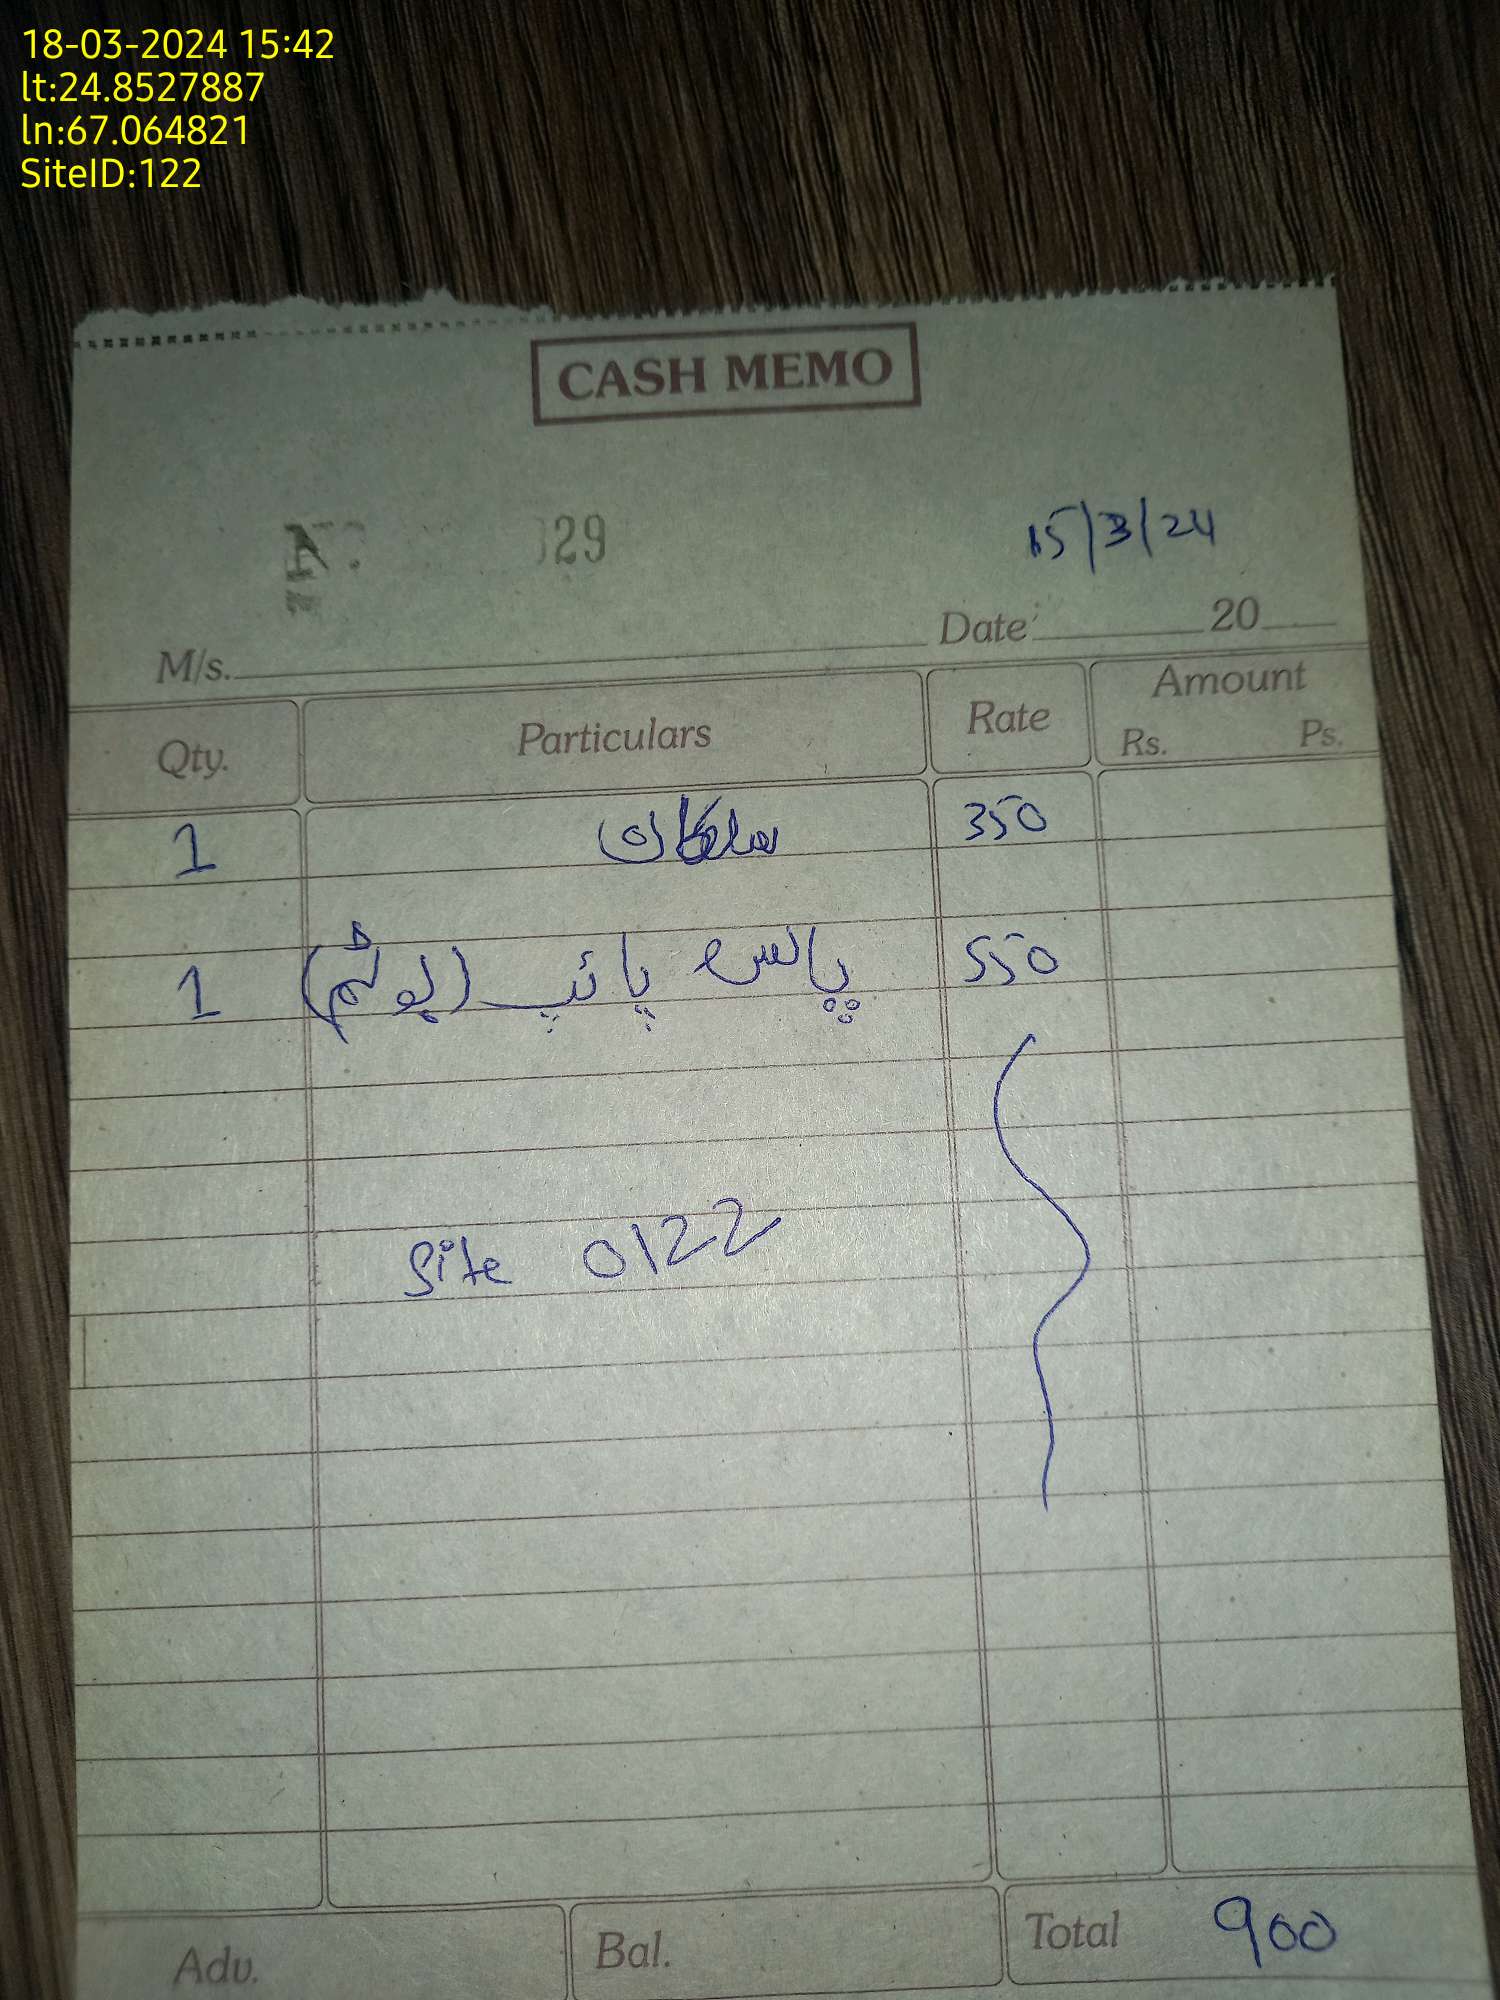 18-03-2024 15:42
lt:24.8527887
ln:67.064821
SiteID:122
CASH MEMO
29
15/3/24
M/s. Date 20
Qty. Particulars Rate Amount
Rs. Ps.
1 350
1 پائپ (بوٹم) 550
Site 0122
Adv. Bal. Total 900